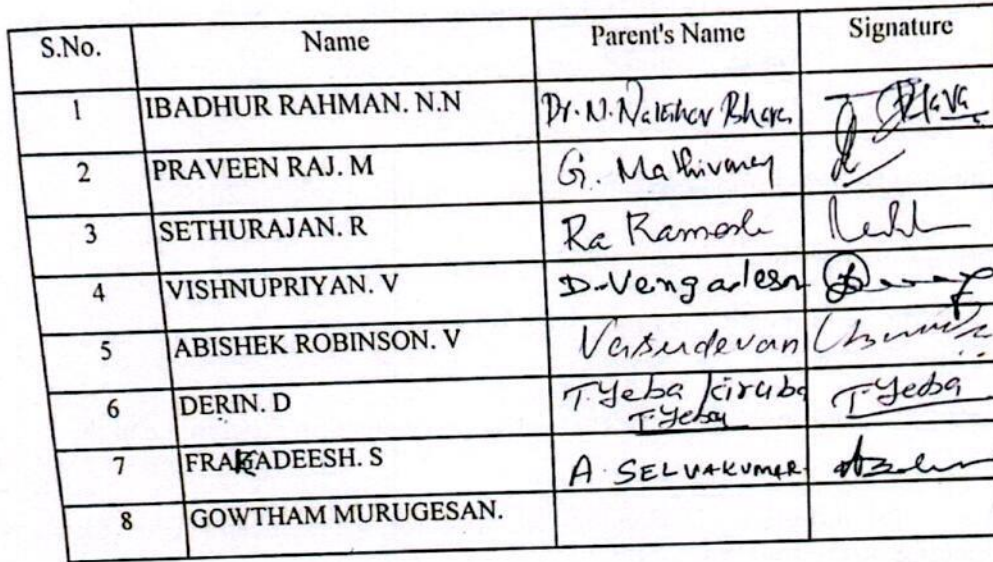 S.No. Name Parent's Name Signature
1 IBADHUR RAHMAN. N.N Dr. N.
2 PRAVEEN RAJ. M G. Mathivanan
3 SETHURAJAN. R Ra Ramesh
4 VISHNUPRIYAN. V D. Vengadesn
5 ABISHEK ROBINSON. V Vasudevan
6 DERIN. D T. Yeba Kiruba T. Yeba
T. Yeba
7 FRAKADEESH. S A. SELVAKUMAR
8 GOWTHAM MURUGESAN.